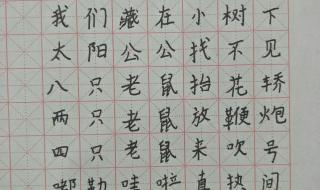 我们藏在小树下
太阳公公找不见
八只老鼠抬花轿
两只老鼠放鞭炮
四只老鼠来吹号
嘟勒哇啦真热闹